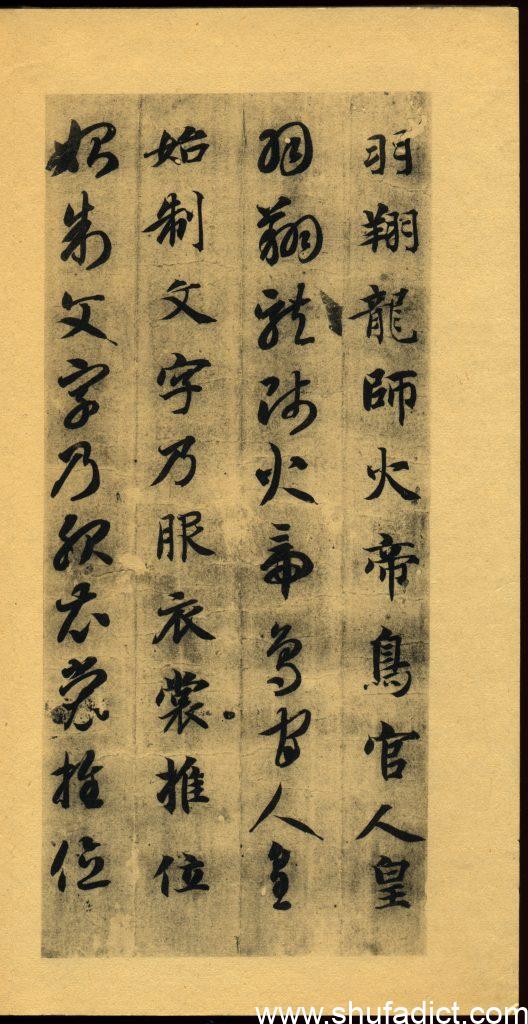 羽翔龍師火帝鳥官人皇
羽翔龍師火帝鳥官人皇
始制文字乃服衣裳推位
始制文字乃服衣裳推位
www.shufadict.com